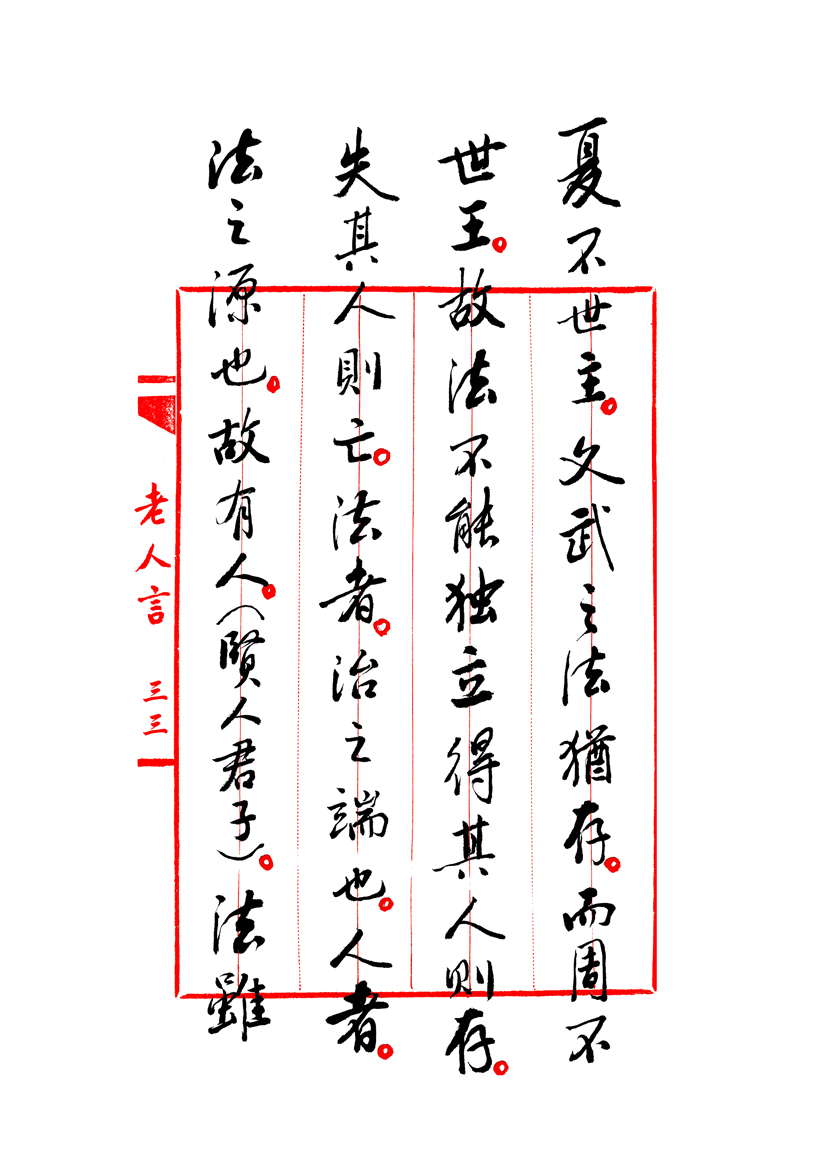 夏不世主。文武之法猶存。而周不
世王。故法不能独立得其人则存。
失其人則亡。法者。治之端也。人者。
法之源也。故有人。（賢人君子）。法雖
老人言 三三